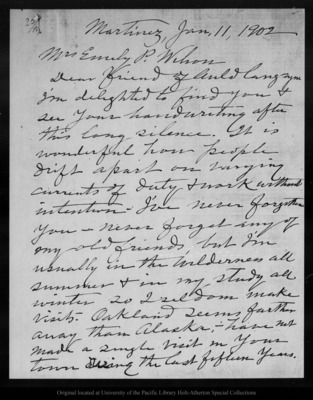 Martinez, Jan, 11, 1902
Mrs Emily P. Wilson
Dear friend of Auld lang syne
I'm delighted to find you &
see your handwriting after
this long silence. It is
wonderful how people
drift apart on varying
currents of duty & work without
intention - I've never forgotten
you - never forget any of
my old friends, but I'm
usually in the wilderness all
summer & in my study all
winter so I seldom make
visits. Oakland seems farther
away than Alaska, - have not
made a single visit in your
town the last fifteen years.
Original located at University of the Pacific Library Holt-Atherton Special Collections